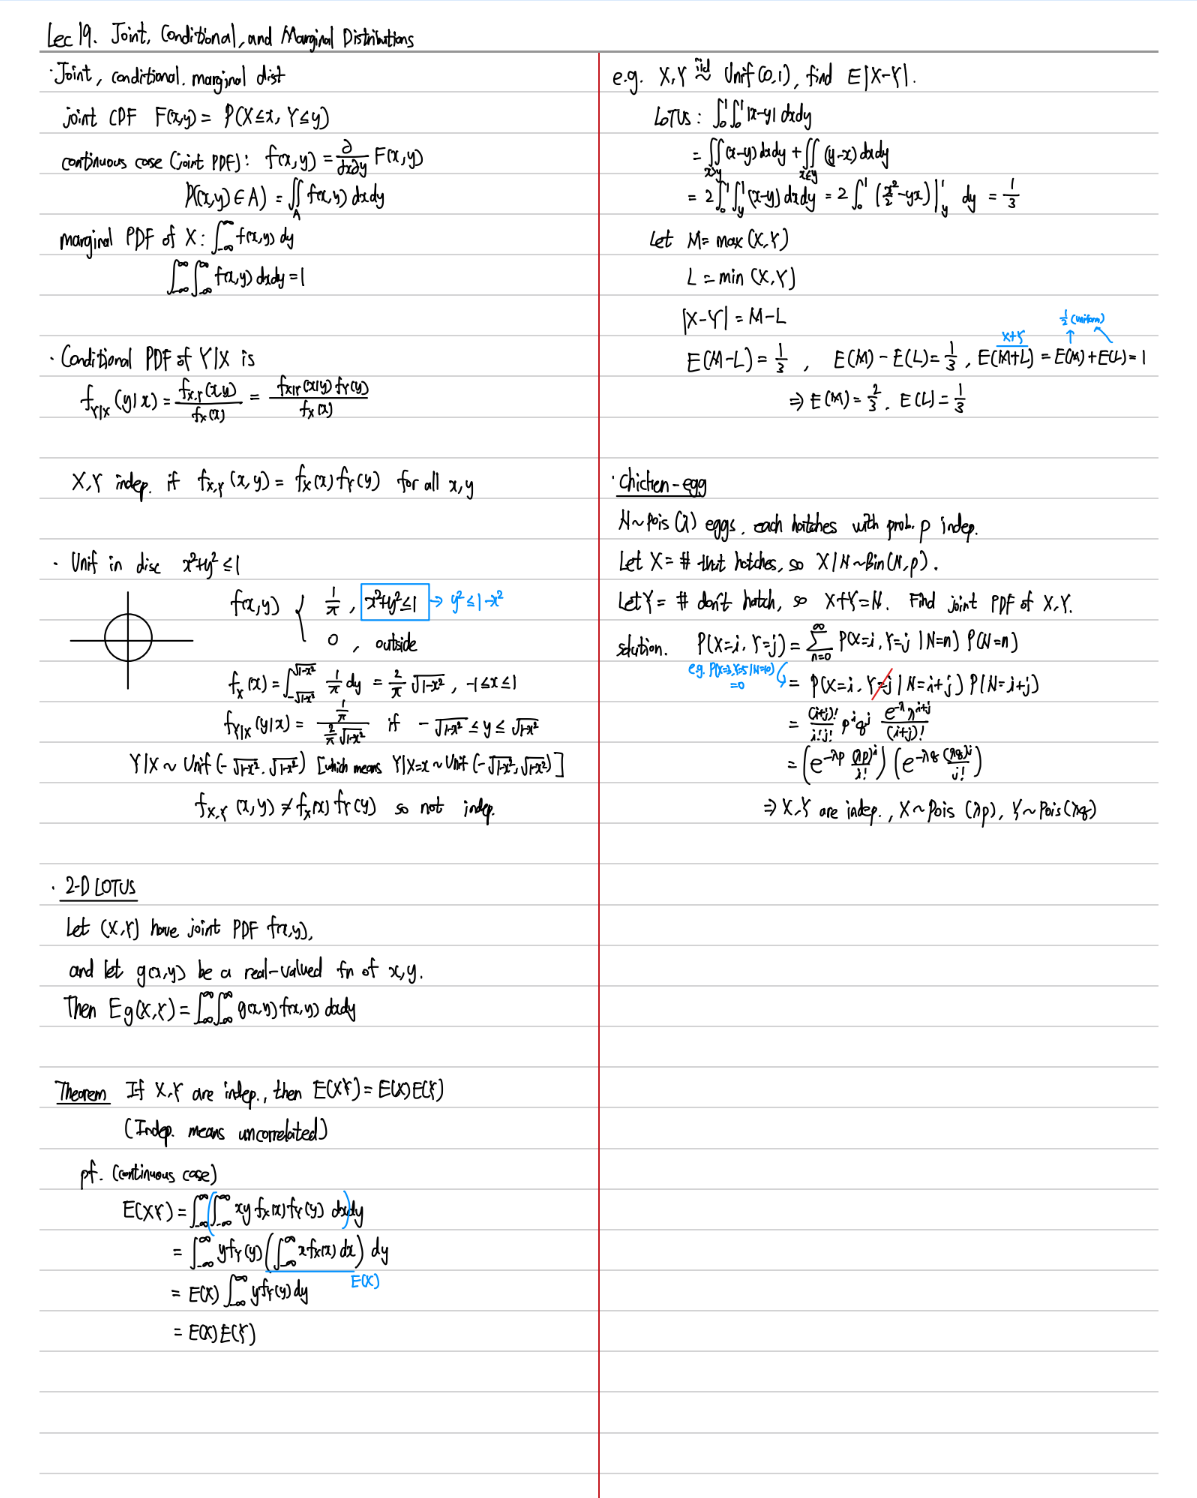 Lec 19. Joint, Conditional, and Marginal Distributions
· Joint, conditional. marginal dist
joint CDF F(x,y) = P(X≤x, Y≤y)
continuous case (joint PDF): f(x,y) = ∂/∂x∂y F(x,y)
P((x,y) ∈ A) = ∬_A f(x,y) dxdy
marginal PDF of X: ∫_{-∞}^{∞} f(x,y) dy
∫_{-∞}^{∞} ∫_{-∞}^{∞} f(x,y) dxdy = 1
· Conditional PDF of Y|X is
f_{Y|X}(y|x) = f_{X,Y}(x,y) / f_X(x) = f_{X|Y}(x|y) f_Y(y) / f_X(x)
X,Y indep. if f_{X,Y}(x,y) = f_X(x) f_Y(y) for all x,y
· Unif in disc x²+y² ≤ 1
f(x,y) { 1/π , x²+y² ≤ 1 → y² ≤ 1-x²
0 , outside
f_X(x) = ∫_{-√(1-x²)}^{√(1-x²)} 1/π dy = 2/π √(1-x²) , -1≤x≤1
f_{Y|X}(y|x) = (1/π) / (2/π √(1-x²)) if -√(1-x²) ≤ y ≤ √(1-x²)
Y|X ~ Unif(-√(1-x²), √(1-x²)) [which means Y|X=x ~ Unif(-√(1-x²), √(1-x²))]
f_{X,Y}(x,y) ≠ f_X(x) f_Y(y) so not indep.
· 2-D LOTUS
Let (X,Y) have joint PDF f(x,y),
and let g(x,y) be a real-valued fn of x,y.
Then E g(X,Y) = ∫_{-∞}^{∞} ∫_{-∞}^{∞} g(x,y) f(x,y) dxdy
Theorem If X,Y are indep., then E(XY) = E(X)E(Y)
(Indep. means uncorrelated)
pf. (continuous case)
E(XY) = ∫_{-∞}^{∞} (∫_{-∞}^{∞} xy f_X(x) f_Y(y) dx) dy
= ∫_{-∞}^{∞} y f_Y(y) (∫_{-∞}^{∞} x f_X(x) dx) dy
E(X)
= E(X) ∫_{-∞}^{∞} y f_Y(y) dy
= E(X) E(Y)
e.g. X,Y iid ~ Unif(0,1), find E|X-Y|.
LOTUS: ∫_0^1 ∫_0^1 |x-y| dxdy
= ∬_{x>y} (x-y) dxdy + ∬_{x≤y} (y-x) dxdy
= 2∫_0^1 ∫_y^1 (x-y) dxdy = 2∫_0^1 (x²/2 - yx)|_y^1 dy = 1/3
Let M = max(X,Y)
L = min(X,Y)
|X-Y| = M-L
1/2 (uniform)
X+Y
E(M-L) = 1/3 , E(M) - E(L) = 1/3 , E(M+L) = E(M)+E(L) = 1
⇒ E(M) = 2/3 , E(L) = 1/3
· Chicken-egg
N ~ Pois(λ) eggs, each hatches with prob. p indep.
Let X = # that hatches, so X|N ~ Bin(N,p).
Let Y = # don't hatch, so X+Y=N. Find joint PDF of X,Y.
solution. P(X=i, Y=j) = Σ_{n=0}^{∞} P(X=i, Y=j | N=n) P(N=n)
e.g. P(X=3,Y=5|N=10) = 0
= P(X=i, Y=j | N=i+j) P(N=i+j)
= (i+j)!/(i!j!) p^i q^j e^{-λ} λ^{i+j}/(i+j)!
= (e^{-λp} (λp)^i/i!) (e^{-λq} (λq)^j/j!)
⇒ X,Y are indep., X ~ Pois(λp), Y ~ Pois(λq)